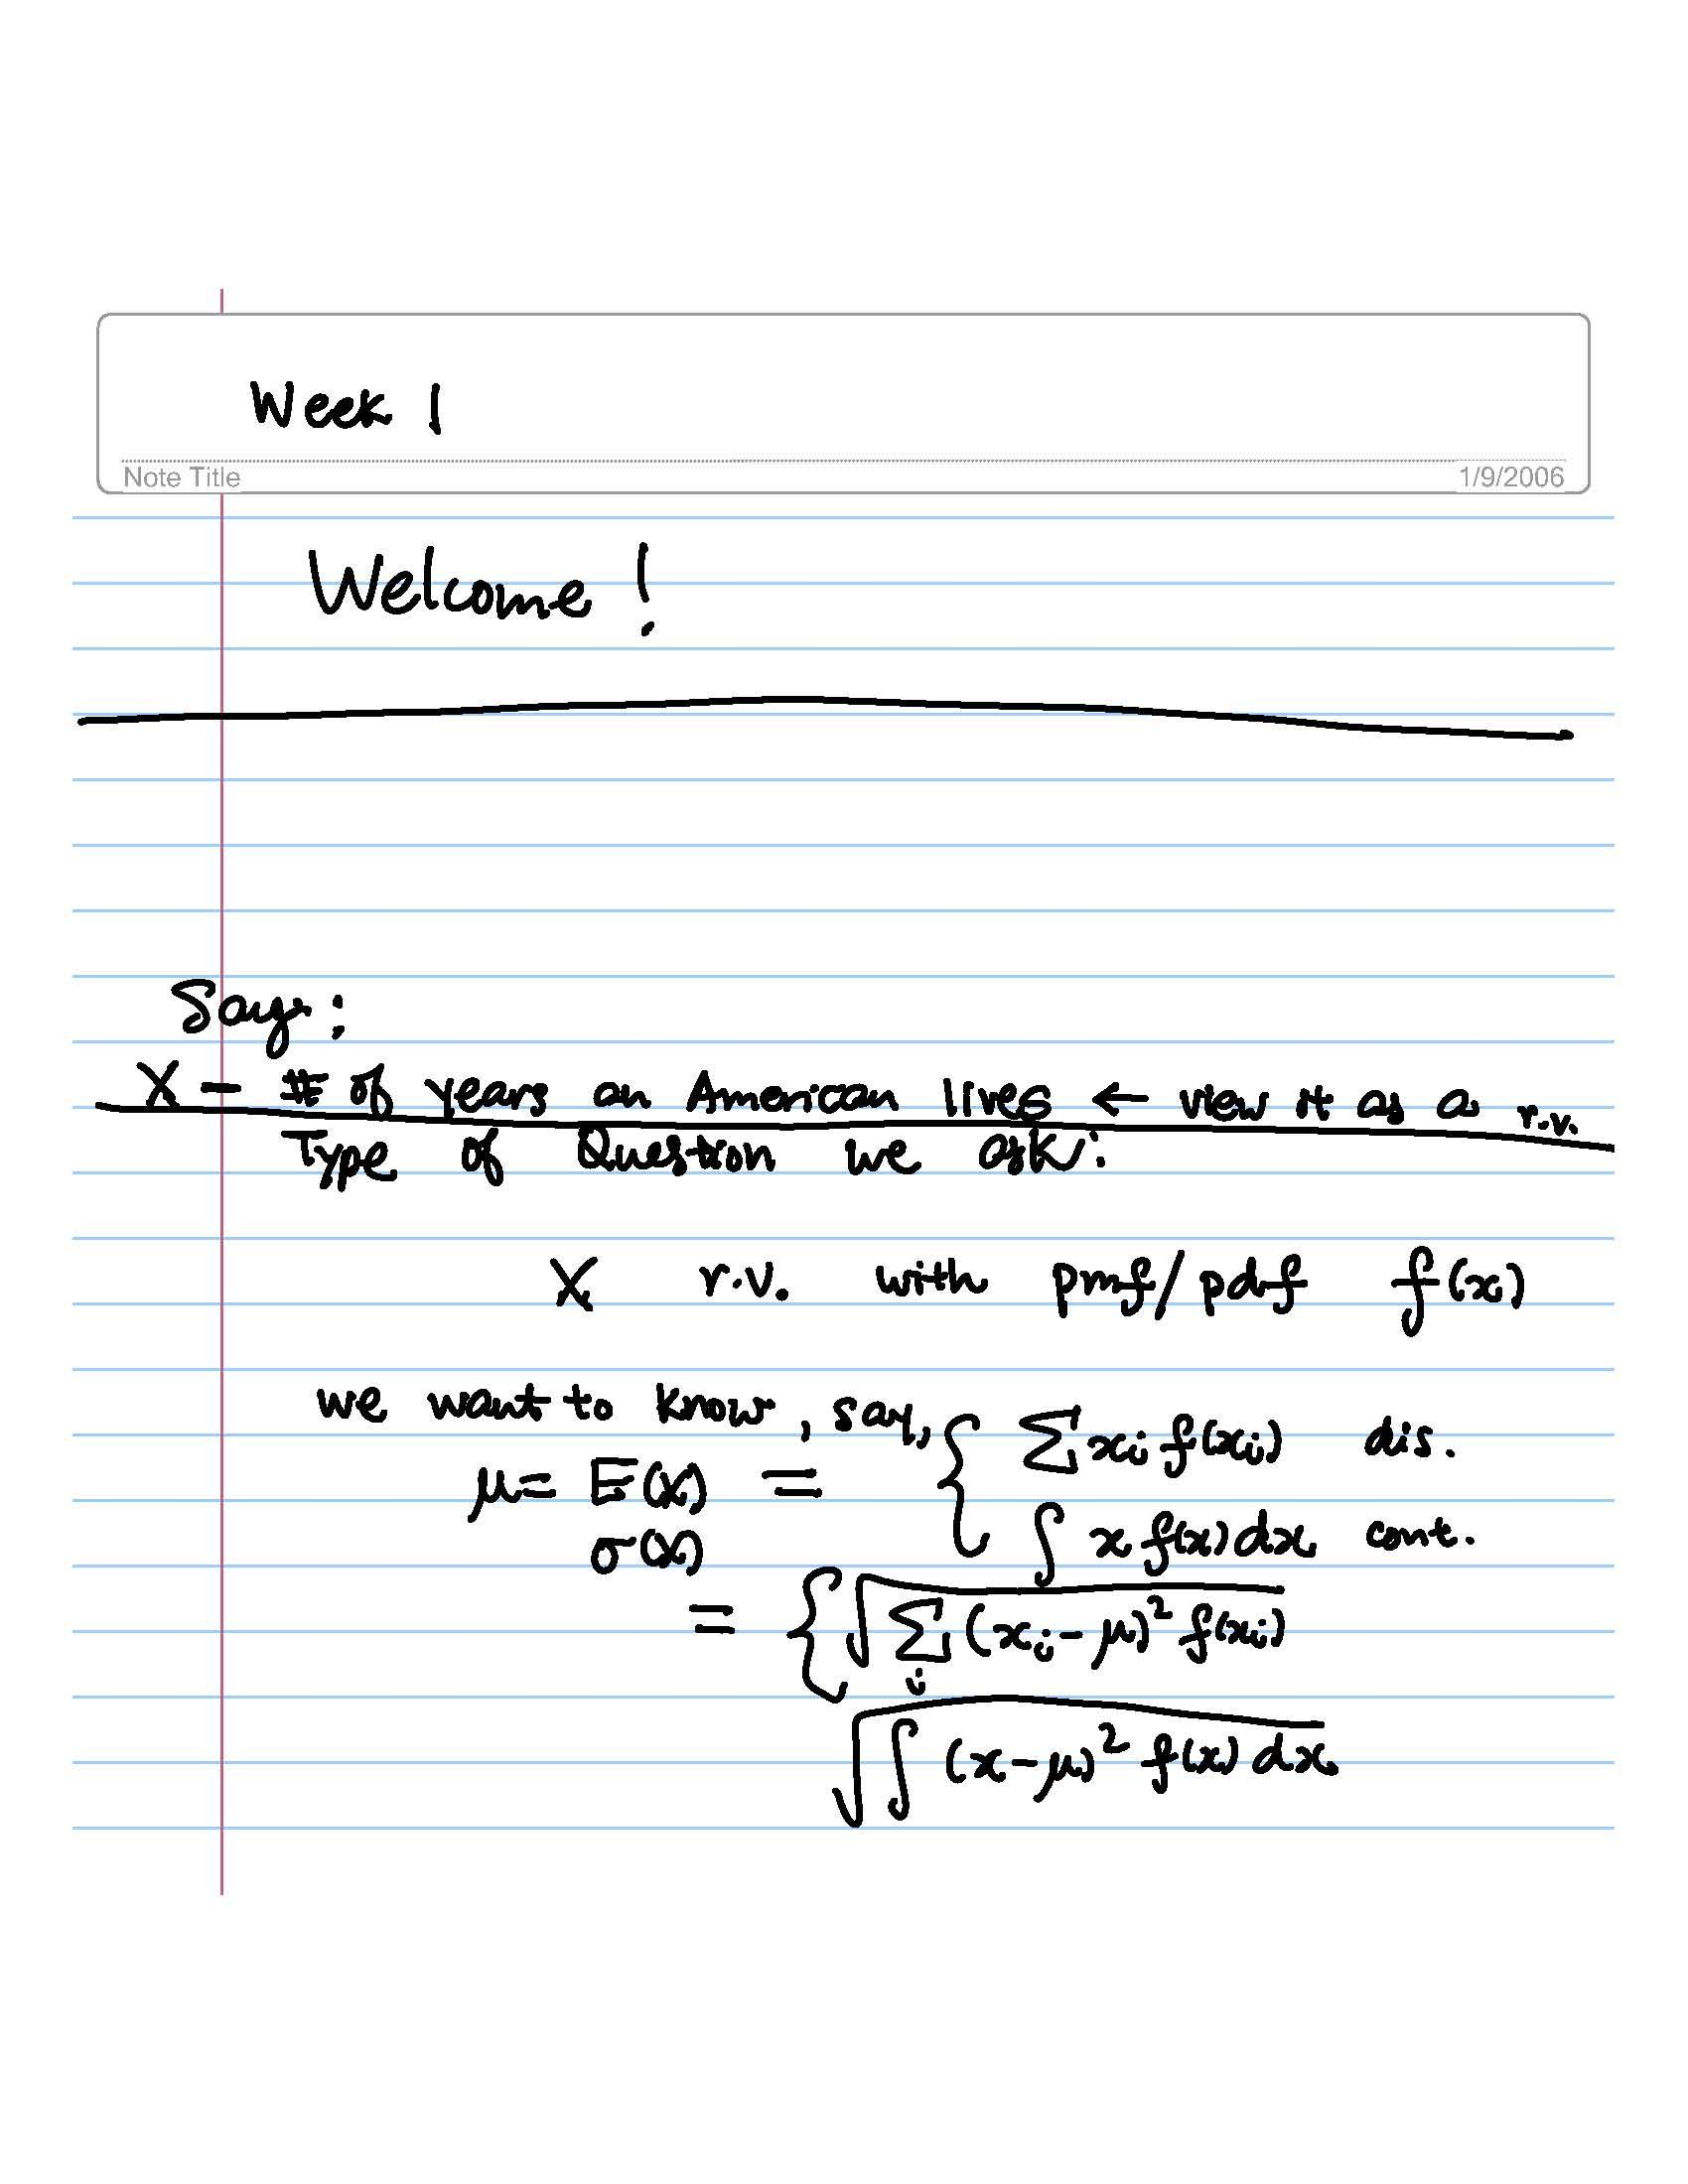 Week 1
Note Title 1/9/2006
Welcome!
Say:
X – # of years an American lives ← view it as a r.v.
Type of Question we ask:
X r.v. with pmf/pdf f(x)
we want to know, say,
μ = E(X) = { ∑ xᵢ f(xᵢ) dis.
∫ x f(x) dx cont.
σ(X)
= { √ ∑ᵢ (xᵢ - μ)² f(xᵢ)
√ ∫ (x - μ)² f(x) dx